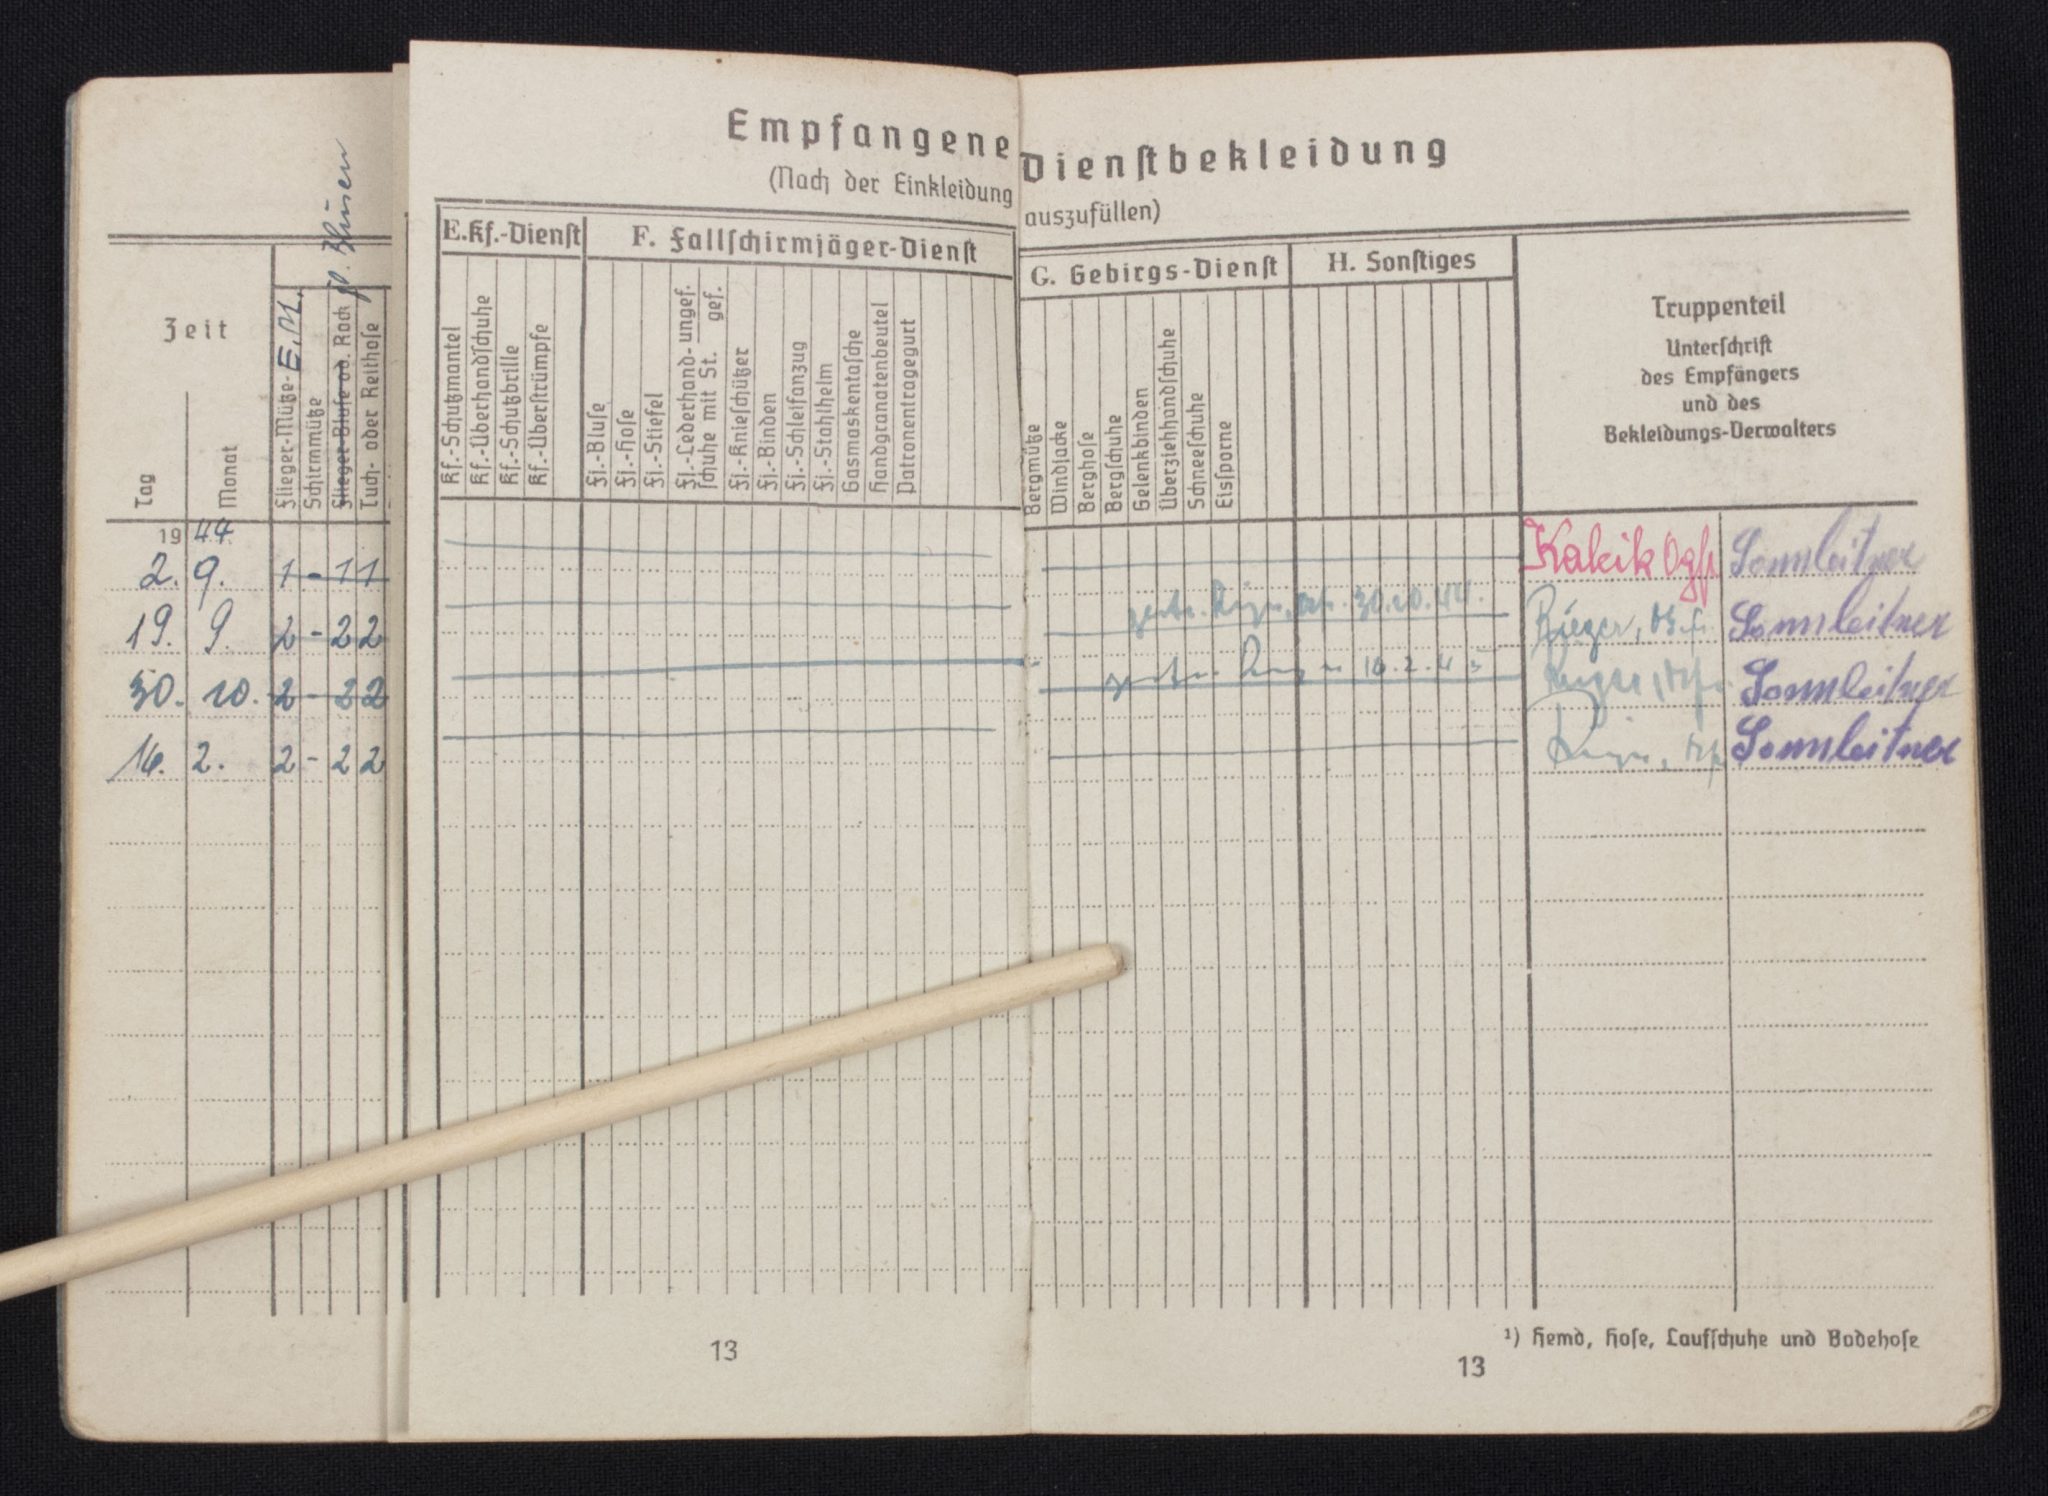 Empfangene Dienstbekleidung
(Nach der Einkleidung auszufüllen)
Zeit
Tag
Monat
Flieger-Mütze- E.M.
Schirmmütze
Flieger-Bluse od. Rock fl. Blusen
Tuch- oder Reithose
E. Kf.-Dienst
Kf.-Schutzmantel
Kf.-Überhandschuhe
Kf.-Schutzbrille
Kf.-Überstrümpfe
F. Fallschirmjäger-Dienst
Fj.-Bluse
Fj.-Hose
Fj.-Stiefel
Fj.-Lederhand- ungef.
schuhe mit St. gef.
Fj.-Knieschützer
Fj.-Binden
Fj.-Schleifanzug
Fj.-Stahlhelm
Gasmaskentasche
Handgranatenbeutel
Patronentragegurt
G. Gebirgs-Dienst
Bergmütze
Windjacke
Berghose
Bergschuhe
Gelenkbinden
Überziehhandschuhe
Schneeschuhe
Eissporne
H. Sonstiges
Truppenteil
Unterschrift
des Empfängers
und des
Bekleidungs-Verwalters
19 44
2. 9. 1 - 1 1 Sonnleitner
19. 9. 2 - 2 2 30.10.44. Sonnleitner
30. 10. 2 - 2 2 16.2.45 Sonnleitner
16. 2. 2 - 2 2 Sonnleitner
¹) Hemd, Hose, Laufschuhe und Badehose
13
13